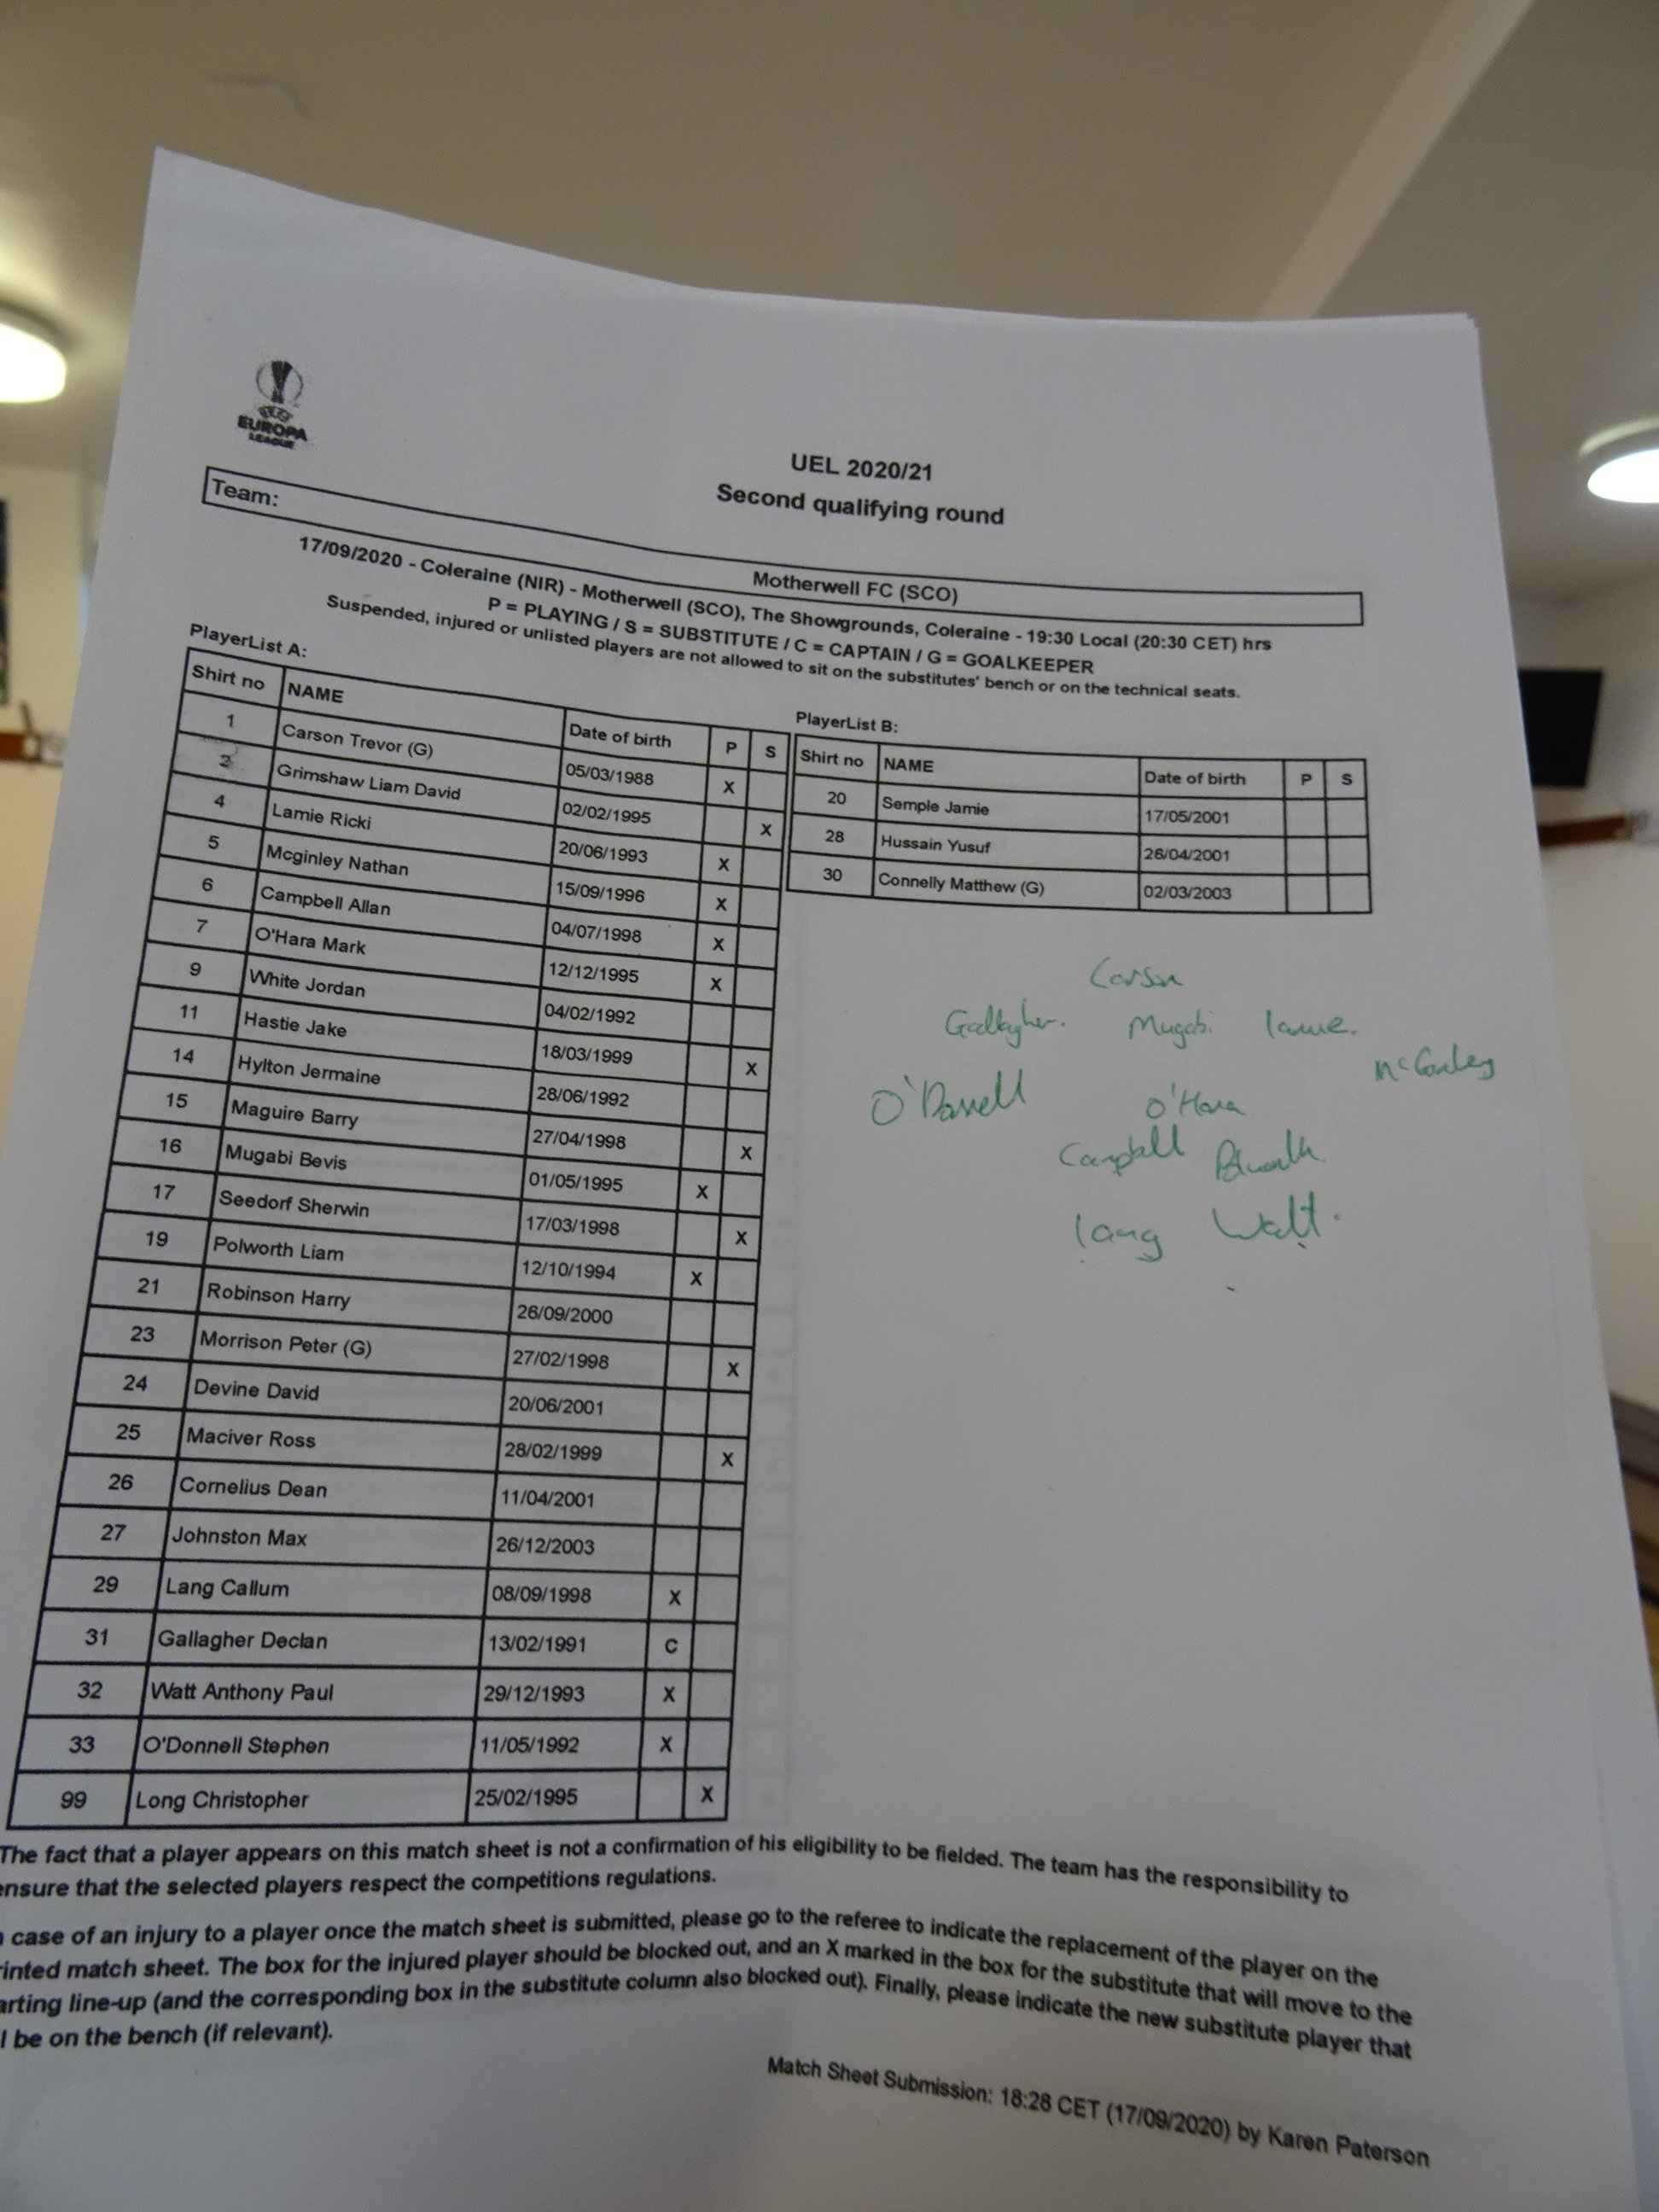 UEFA
EUROPA
LEAGUE
UEL 2020/21
Second qualifying round
Team: Motherwell FC (SCO)
17/09/2020 - Coleraine (NIR) - Motherwell (SCO), The Showgrounds, Coleraine - 19:30 Local (20:30 CET) hrs
P = PLAYING / S = SUBSTITUTE / C = CAPTAIN / G = GOALKEEPER
Suspended, injured or unlisted players are not allowed to sit on the substitutes' bench or on the technical seats.
PlayerList A:
Shirt no NAME Date of birth P S
1 Carson Trevor (G) 05/03/1988 X
2 Grimshaw Liam David 02/02/1995 X
4 Lamie Ricki 20/06/1993 X
5 Mcginley Nathan 15/09/1996 X
6 Campbell Allan 04/07/1998 X
7 O'Hara Mark 12/12/1995 X
9 White Jordan 04/02/1992
11 Hastie Jake 18/03/1999 X
14 Hylton Jermaine 28/06/1992
15 Maguire Barry 27/04/1998 X
16 Mugabi Bevis 01/05/1995 X
17 Seedorf Sherwin 17/03/1998 X
19 Polworth Liam 12/10/1994 X
21 Robinson Harry 26/09/2000
23 Morrison Peter (G) 27/02/1998 X
24 Devine David 20/06/2001
25 Maciver Ross 28/02/1999 X
26 Cornelius Dean 11/04/2001
27 Johnston Max 26/12/2003
29 Lang Callum 08/09/1998 X
31 Gallagher Declan 13/02/1991 C
32 Watt Anthony Paul 29/12/1993 X
33 O'Donnell Stephen 11/05/1992 X
99 Long Christopher 25/02/1995 X
PlayerList B:
Shirt no NAME Date of birth P S
20 Semple Jamie 17/05/2001
28 Hussain Yusuf 26/04/2001
30 Connelly Matthew (G) 02/03/2003
Carson
Gallagher. Mugabi lamie.
McGinley
O'Donnell O'Hara
Campbell Polworth
lang Watt.
The fact that a player appears on this match sheet is not a confirmation of his eligibility to be fielded. The team has the responsibility to
ensure that the selected players respect the competitions regulations.
case of an injury to a player once the match sheet is submitted, please go to the referee to indicate the replacement of the player on the
rinted match sheet. The box for the injured player should be blocked out, and an X marked in the box for the substitute that will move to the
arting line-up (and the corresponding box in the substitute column also blocked out). Finally, please indicate the new substitute player that
l be on the bench (if relevant).
Match Sheet Submission: 18:28 CET (17/09/2020) by Karen Paterson